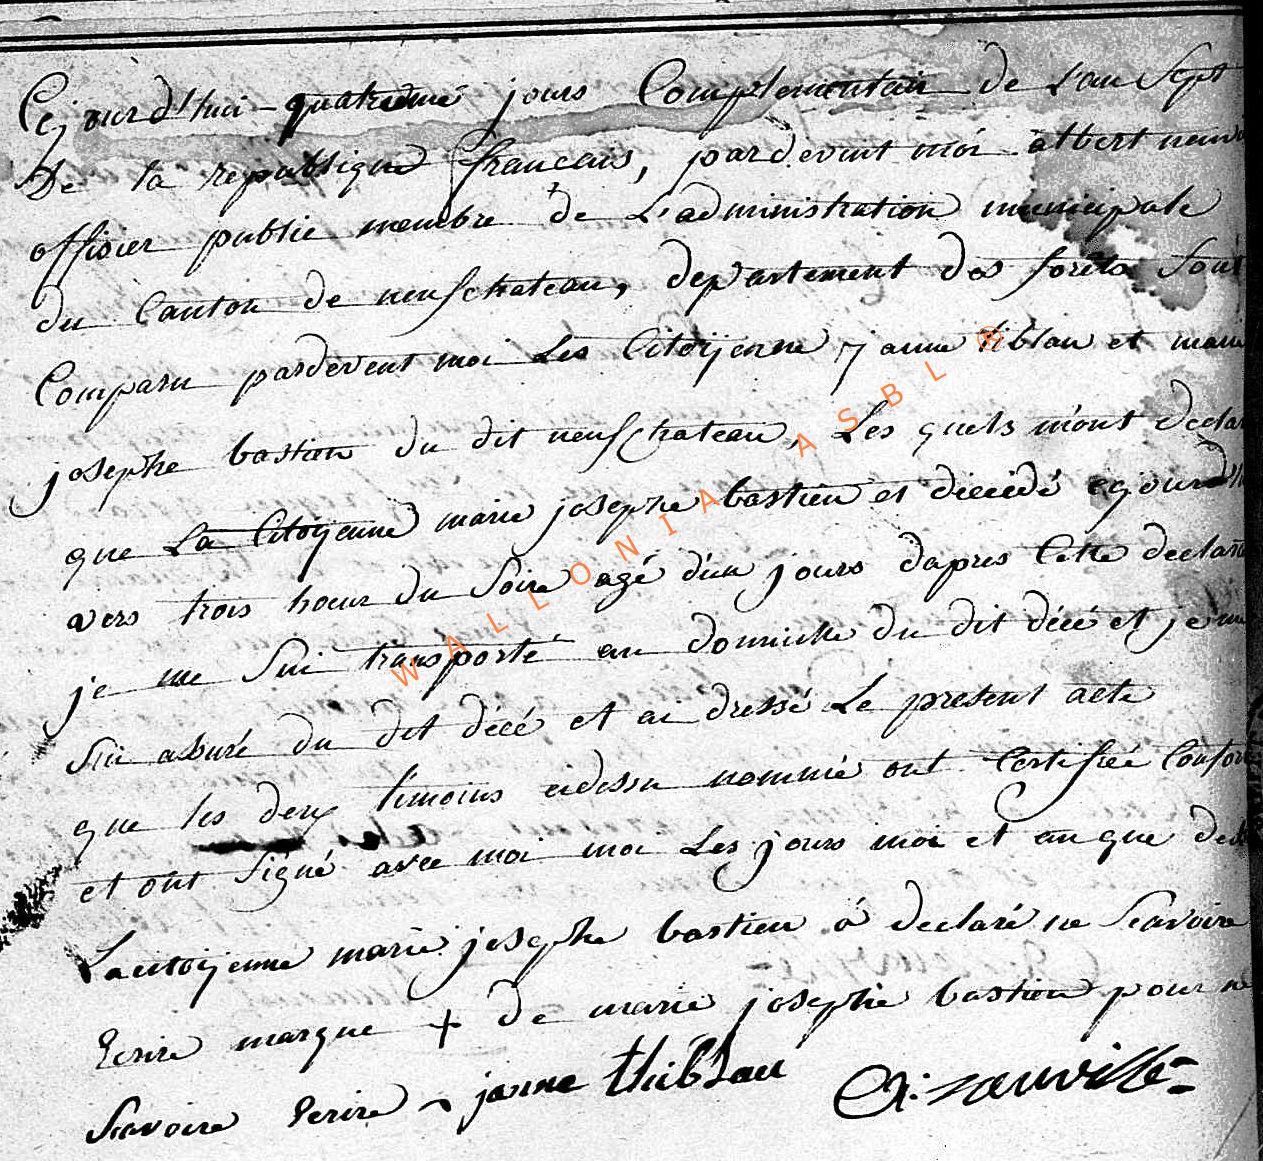 Cejourd'hui quatrieme jours Complementair de L'an Sept
De la republique francais, pardevent moi albert
officier public membre de L'administration municipale
du Canton de neufchateau, departement des forêts Sont
Comparu pardevent moi Les Citoijenne janne tiblau et marie
josephe bastien du dit neufchateau, Les quels m'ont declar
que La Citoijenne marie josephe bastien et décédé cejourd'h
vers trois hoeur du Soire agé d'un jours dapres Cette declarat
je me Sui transporté au domicile du dit décé et je me
Sui assuré du dit décé et ai dressé Le present acte
que les deux temoins cidessu nommé ont Certifiée Confor
et ont Signé avec moi moi Les jours moi et an que dess
La citoijenne marie josephe bastien á declaré ne Scavoire
Ecrire marque + de marie josephe bastien pour ne
Scavoire Ecrire janne thiblau
WALLONIA ASBL ®